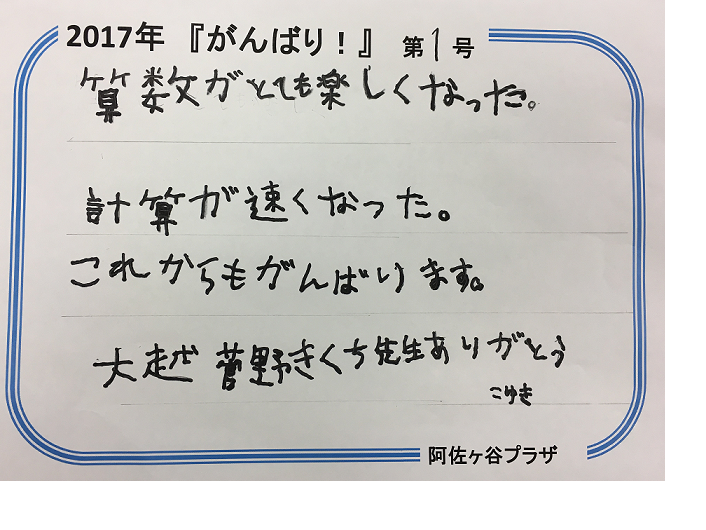 2017年 『がんばり！』 第1号
算数がとても楽しくなった。
計算が速くなった。
これからもがんばります。
大越 菅野きくち先生ありがとう
こゆき
阿佐ヶ谷プラザ